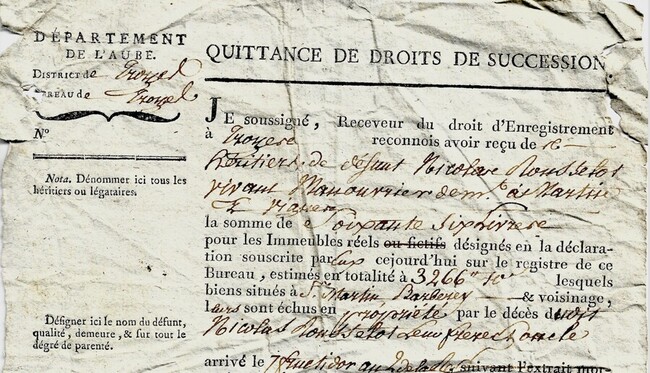 DÉPARTEMENT
DE L'AUBE.
DISTRICT de Troyes
BUREAU de Troyes
N°
Nota. Dénommer ici tous les
héritiers ou légataires.
Désigner ici le nom du défunt,
qualité, demeure, & sur tout le
dégré de parenté.
QUITTANCE DE DROITS DE SUCCESSION
JE soussigné, Receveur du droit d'Enregistrement
à Troyes reconnois avoir reçu de
héritiers de défunt Nicolas Rousselot
vivant Manouvrier dem.t à St Martin
la somme de Soixante Six livres
pour les Immeubles réels ou fictifs désignés en la déclara-
tion souscrite par eux cejourd'hui sur le registre de ce
Bureau, estimés en totalité à 3266 lesquels
biens situés à St Martin Barberey & voisinage,
leurs sont échus en propriété par le décès dudit
Nicolas Rousselot leur frere & oncle
arrivé le 7 fructidor an 2 de la suivant l'extrait mor-